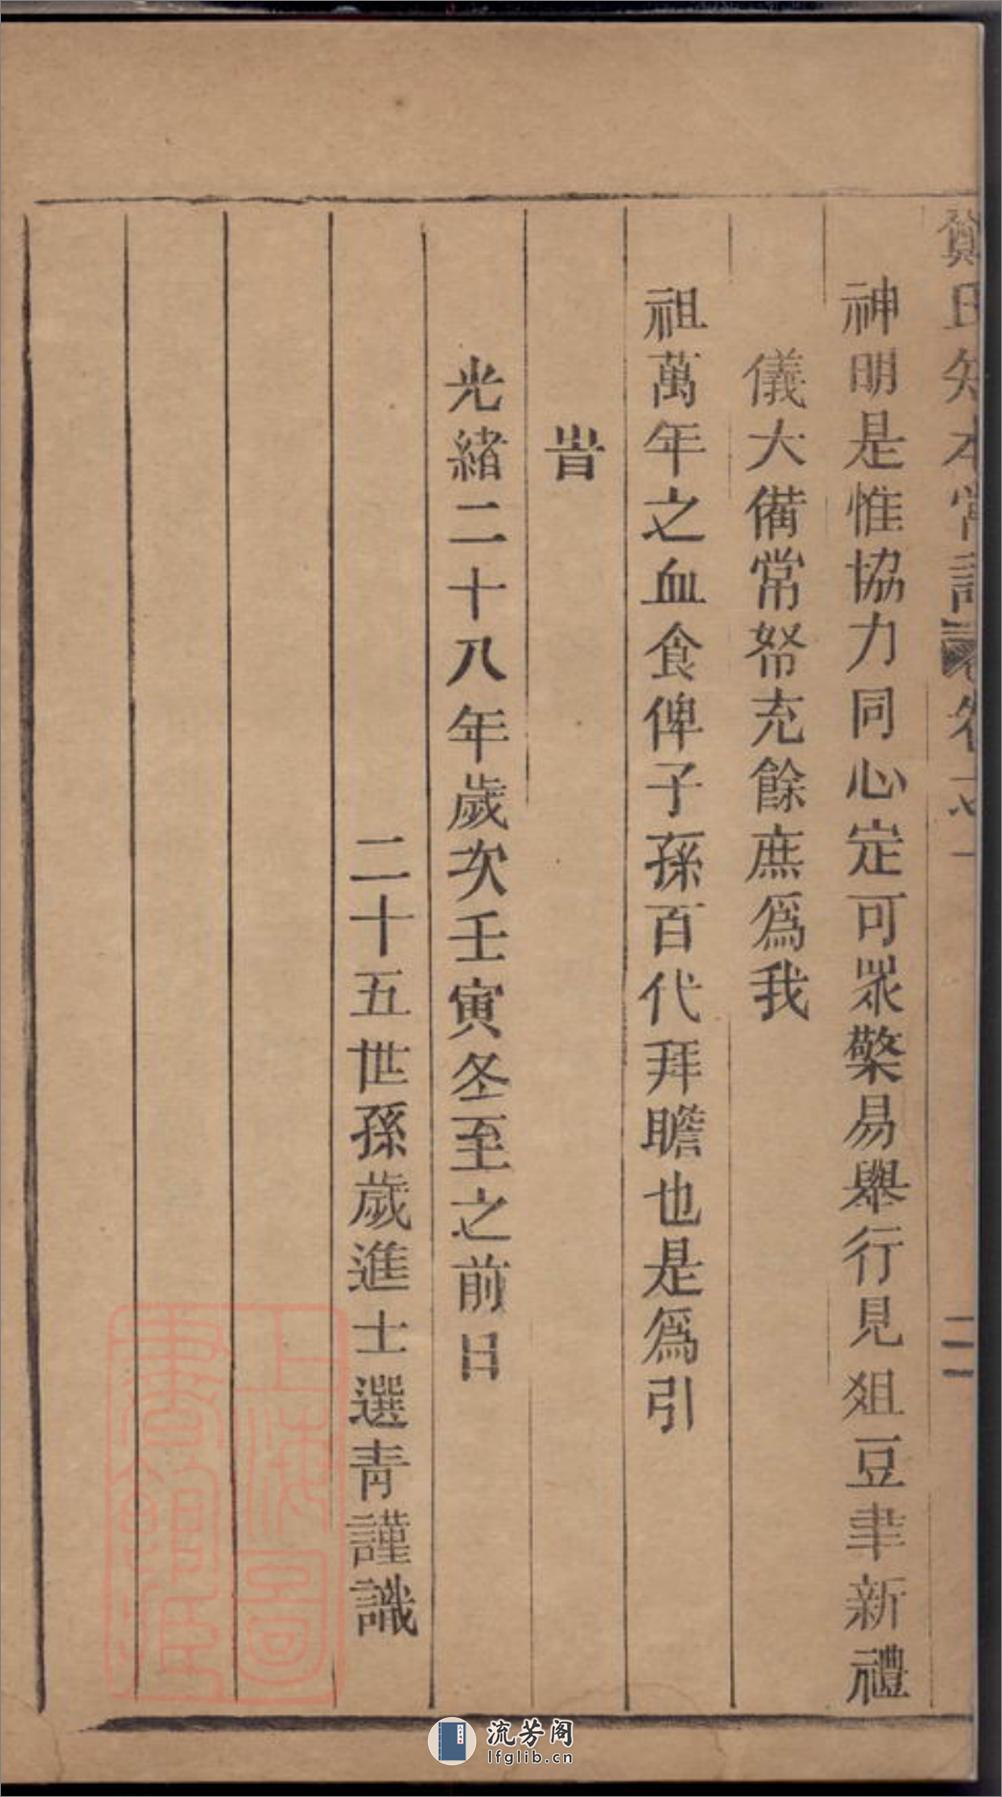 鄭氏知本堂譜 卷之一 二
神明是惟協力同心定可眾擎易舉行見爼豆聿新禮
儀大備常帑充餘庶爲我
祖萬年之血食俾子孫百代拜瞻也是爲引
旹
光緒二十八年歲次壬寅冬至之前日
二十五世孫歲進士選青謹識
上海圖
書館藏
流芳阁
lfglib.cn